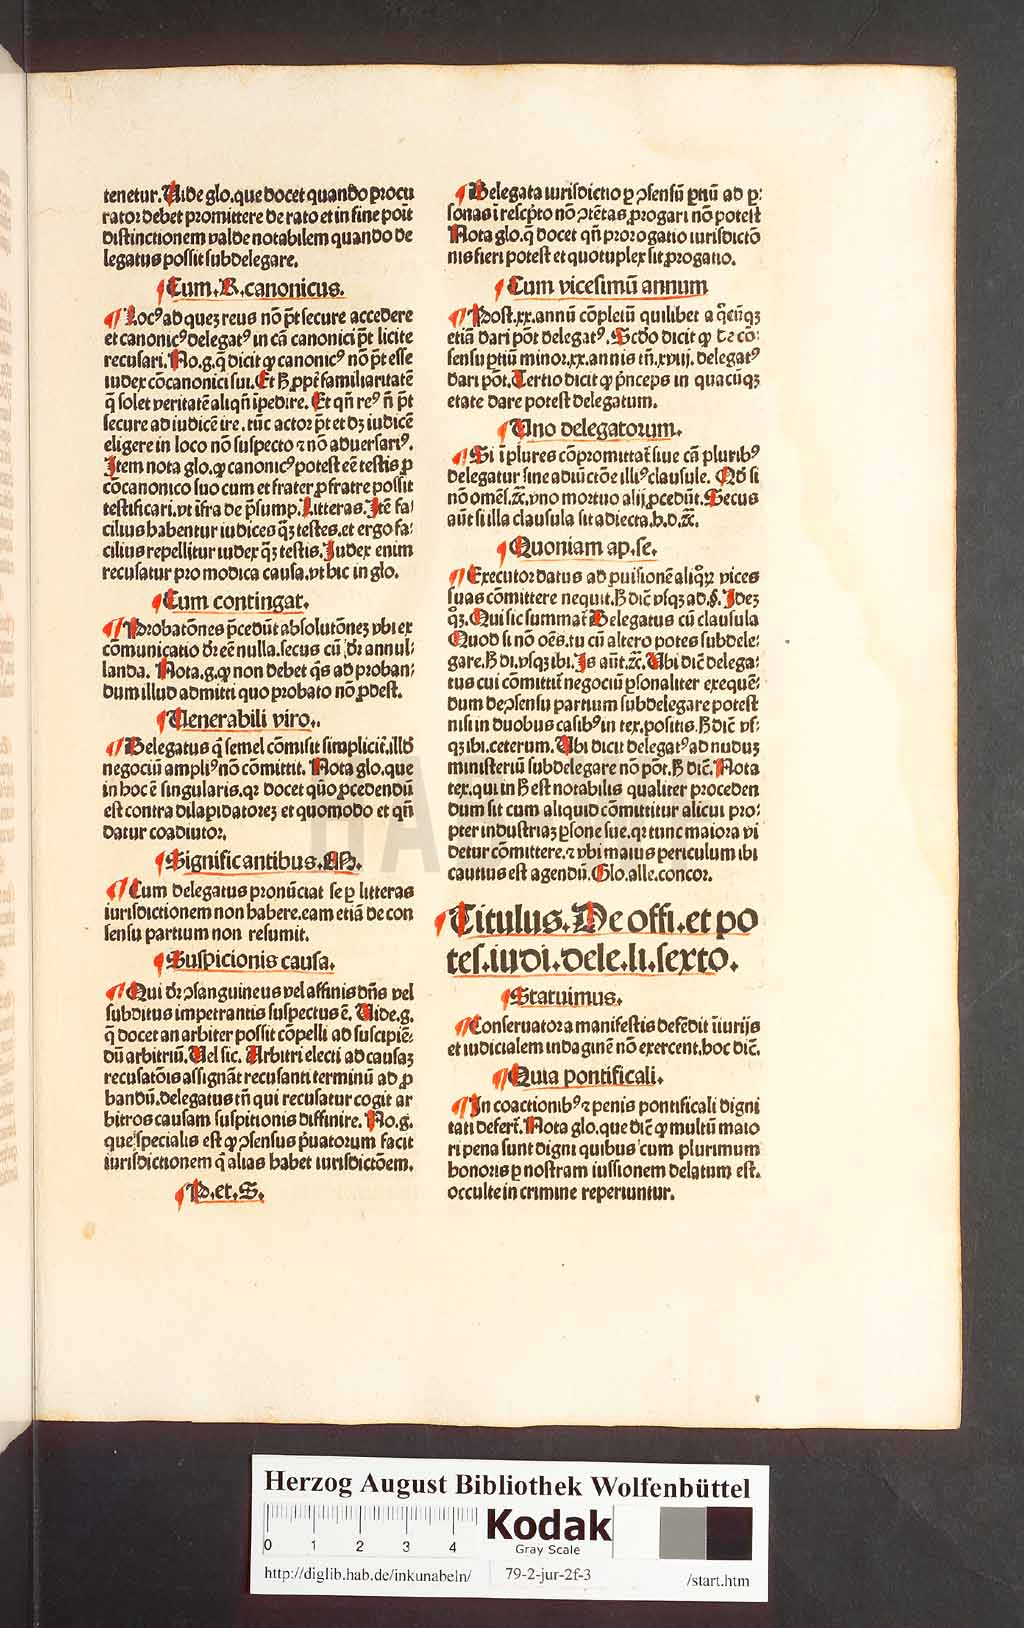 tenetur. Uide glo. que docet quando procu
rator debet promittere de rato et in fine poit
distinctionem valde notabilem quando de
legatus possit subdelegare.
¶ Cum. R. canonicus.
¶ Locꝰ ad quez reus nō p̄t secure accedere
et canonicꝰ delegatꝰ in cā canonici p̄t licite
recusari. No. g. q̄ dicit ꝙ canonicꝰ nō p̄t esse
iudex cōcanonici sui. Et ꝓpt̄ familiaritatē
q̄ solet veritatē aliqn̄ īpedire. Et qn̄ reꝰ n̄ p̄t
secure ad iudicē ire. tūc actor p̄t et dꝫ iudicē
eligere in loco nō suspecto ⁊ nō aduersariꝰ.
Item nota glo. ꝙ canonicꝰ potest eē testis ꝓ
cōcanonico suo cum et frater ꝓ fratre possit
testificari. vt īfra de p̄sump. Litteras. Itē fa⸗
cilius habentur iudices qꝫ testes. et ergo fa⸗
cilius repellitur iudex qꝫ testis. Iudex enim
recusatur pro modica causa. vt hic in glo.
¶ Cum contingat.
¶ Probatōnes p̄cedūt absolutōnez vbi ex
cōmunicatio dr̄ eē nulla. secus cū dr̄ annul⸗
landa. Nota. g. ꝙ non debet q̄s ad proban⸗
dum illud admitti quo probato nō ꝓdest.
¶ Uenerabili viro.
¶ Delegatus q̄ semel cōmisit simplicit̄. illd
negociū ampliꝰ nō cōmittit. Nota glo. que
in hoc ē singularis. qꝛ docet quō ꝓcedendū
est contra dilapidatorez et quomodo et qn̄
datur coadiutor.
¶ Significantibus. AB.
¶ Cum delegatus pronūciat se ꝑ litteras
iurisdictionem non habere. eam etiā de con
sensu partium non resumit.
¶ Suspicionis causa.
¶ Qui dr̄ ꝯsanguineus vel affinis dn̄s vel
subditus impetrantis suspectus ē. Uide. g.
q̄ docet an arbiter possit cōpelli ad suscipiē⸗
dū arbitriū. Uel sic. Arbitri electi ad causaz
recusatōis assignāt recusanti terminū ad ꝓ
bandū. delegatus tn̄ qui recusatur cogit ar
bitros causam suspitionis diffinire. No. g.
que specialis est ꝙ ꝯsensus p̄uatorum facit
iurisdictionem q̄ alias habet iurisdictōem.
¶ P. et. G.
¶ Delegata iurisdictio ꝑ ꝯsensū ꝑtiū ad ꝑ⸗
sonas ī rescp̄to nō ꝯtētas ꝓrogari nō potest
Nota glo. q̄ docet qn̄ prorogatio iurisdictō
nis fieri potest et quotuplex sit ꝓrogatio.
¶ Cum vicesimū annum
¶ Post. xx. annū cōpletū quilibet a
etiā dari pōt delegatꝰ. Scdo dicit ꝙ de cō⸗
sensu ꝑtiū minor. xx. annis tn̄. xviij. delegatꝰ
dari pōt. Tertio dicit ꝙ p̄nceps in quacūqꝫ
etate dare potest delegatum.
¶ Uno delegatorum.
¶ Si ī plures cōpromittat̄ siue cā pluribꝰ
delegatur sine adiūctōe illiꝰ clausule. Qd si
nō omēs. ⁊c. vno mortuo alij ꝓcedūt. Secus
aūt si illa clausula sit adiecta. h. d. ⁊c.
¶ Quoniam ap. se.
¶ Executor datus ad vices
suas cōmittere nequit. dic̄ vsqꝫ ad. §. Idez
Qui sic summat̄ Delegatus cū clausula
Quod si nō oēs. tu cū altero potes subdele⸗
gare. di. vsqꝫ ibi. Is aūt. ⁊c. Ubi dic̄ delega⸗
tus cui cōmittit̄ negociū ꝑsonaliter exequē⸗
dum de ꝯsensu partium subdelegare potest
nisi in duobus casibꝰ in tex. positis. dic̄ vs⸗
qꝫ ibi. ceterum. Ubi dicit delegatꝰ ad nuduz
ministeriū subdelegare nō pōt. dic̄. Nota
tex. qui in est notabilis qualiter proceden
dum sit cum aliquid cōmittitur alicui pro⸗
pter industriaz ꝑsone sue. qꝛ tunc maiora vi
detur cōmittere. ⁊ vbi maius periculum ibi
cautius est agendū. Glo. alle. concor.
¶ Titulus. De offi. et po
tes. iudi. dele. li. sexto.
¶ Statuimus.
¶ Conseruator a manifestis defēdit īiurijs
et iudicialem indaginē nō exercent. hoc dic̄.
¶ Quia pontificali.
¶ In coactionibꝰ ⁊ penis pontificali digni
tati defert̄. Nota glo. que dic̄ ꝙ multū maio
ri pena sunt digni quibus cum plurimum
honoris ꝑ nostram iussionem delatum est.
occulte in crimine reperiuntur.
HAB
Herzog August Bibliothek Wolfenbüttel
0 1 2 3 4
Kodak
Gray Scale
http://diglib.hab.de/inkunabeln/ 79-2-jur-2f-3 /start.htm